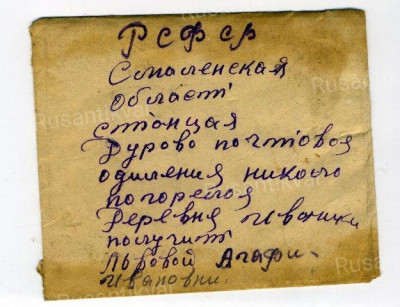 РСФСР
Смаленская
област
станцая
Дурово почтовоя
одиления николо
погорелоя
Деревня Иваники
получит
Львовой Агафи.
Ивановни.